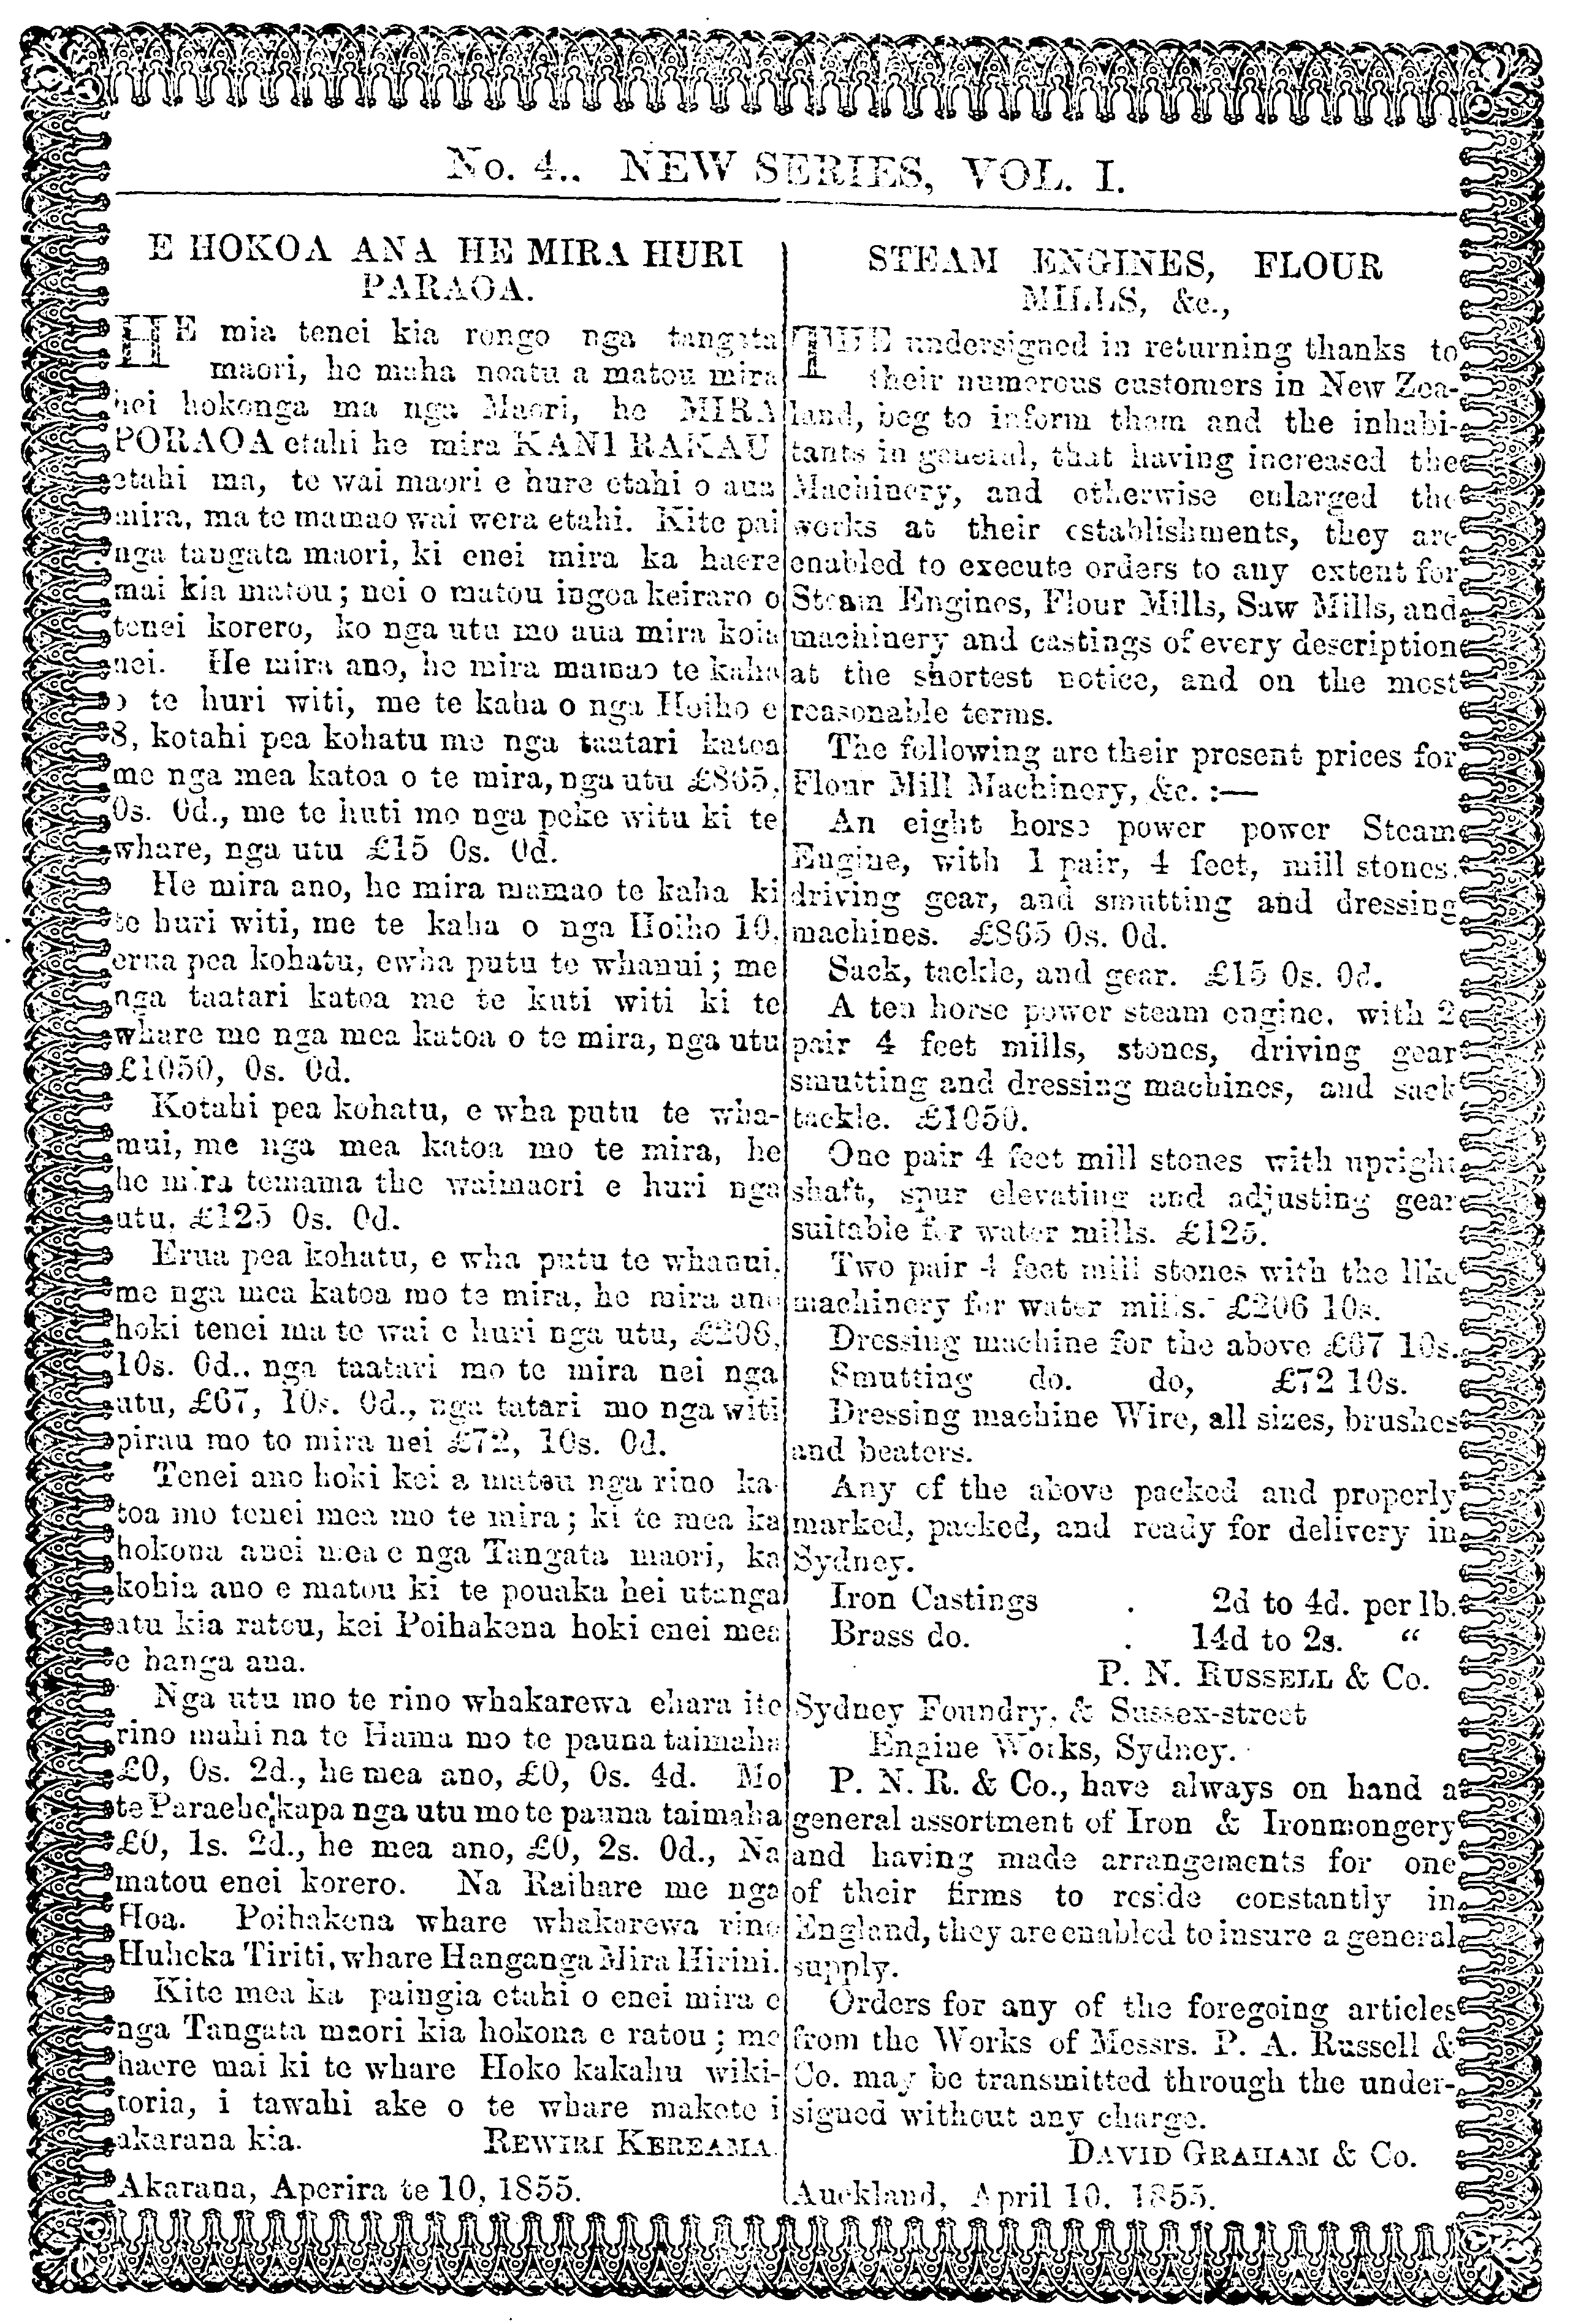 No. 4.. NEW SERIES, VOL. I.
E HOKOA ANA HE MIRA HURI
PARAOA.
HE mia tenei kia rongo nga tangata
maori, he maha noatu a matou mira
hei hokonga ma nga Maori, he MIRA
PORAOA etahi he mira KANI RAKAU
etahi ma, te wai maori e hure etahi o aua
mira, ma te mamao wai wera etahi. Kite pai
nga tangata maori, ki enei mira ka haere
mai kia matou; nei o matou ingoa keiraro o
tenei korero, ko nga utu mo aua mira koia
nei. He mira ano, he mira mamao te kaha
o te huri witi, me te kaha o nga Hoiho e
8, kotahi pea kohatu me nga taatari katoa
me nga mea katoa o te mira, nga utu £865,
0s. 0d., me te huti mo nga peke witu ki te
whare, nga utu £15 0s. 0d.
He mira ano, he mira mamao te kaha ki
te huri witi, me te kaha o nga Hoiho 10,
erua pea kohatu, ewha putu te whanui; me
nga taatari katoa me te kuti witi ki te
whare me nga mea katoa o te mira, nga utu
£1050, 0s. 0d.
Kotahi pea kohatu, e wha putu te wha-
mui, me nga mea katoa mo te mira, he
he mira temama the waimaori e huri nga
utu, £125 0s. 0d.
Erua pea kohatu, e wha putu te whanui,
me nga mea katoa mo te mira, he mira ano
hoki tenei ma te wai e huri nga utu, £206,
10s. 0d.. nga taatari mo te mira nei nga
utu, £67, 10s. 0d., nga tatari mo nga witi
pirau mo to mira nei £72, 10s. 0d.
Tenei ano hoki kei a matou nga rino ka-
toa mo tenei mea mo te mira; ki te mea ka
hokona anei mea e nga Tangata maori, ka
kohia ano e matou ki te pouaka hei utanga
atu kia ratou, kei Poihakena hoki enei mea
e hanga ana.
Nga utu mo te rino whakarewa ehara ite
rino mahi na te Hama mo te pauna taimaha
£0, 0s. 2d., he mea ano, £0, 0s. 4d. Mo
te Paraehe kapa nga utu mo te pauna taimaha
£0, 1s. 2d., he mea ano, £0, 2s. 0d., Na
matou enei korero. Na Raihare me nga
Hoa. Poihakena whare whakarewa rino
Huheka Tiriti, whare Hanganga Mira Hirini.
Kite mea ka paingia etahi o enei mira e
nga Tangata maori kia hokona e ratou; me
haere mai ki te whare Hoko kakahu wiki-
toria, i tawahi ake o te whare makete i
akarana kia. REWIRI KEREAMA.
Akarana, Aperira te 10, 1855.
STEAM ENGINES, FLOUR
MILLS, &c.,
THE undersigned in returning thanks to
their numerous customers in New Zea-
land, beg to inform them and the inhabi-
tants in general, that having increased the
Machinery, and otherwise enlarged the
works at their establishments, they are
enabled to execute orders to any extent for
Steam Engines, Flour Mills, Saw Mills, and
machinery and castings of every description
at the shortest notice, and on the most
reasonable terms.
The following are their present prices for
Flour Mill Machinery, &c. :—
An eight horse power power Steam
Engine, with 1 pair, 4 feet, mill stones,
driving gear, and smutting and dressing
machines. £865 0s. 0d.
Sack, tackle, and gear. £15 0s. 0d.
A ten horse power steam engine, with 2
pair 4 feet mills, stones, driving gear
smutting and dressing machines, and sack
tackle. £1050.
One pair 4 feet mill stones with upright
shaft, spur elevating and adjusting gear
suitable for water mills. £125.
Two pair 4 feet mill stones with the like
machinery for water mills. £206 10s.
Dressing machine for the above £67 10s.
Smutting do. do, £72 10s.
Dressing machine Wire, all sizes, brushes
and beaters.
Any of the above packed and properly
marked, packed, and ready for delivery in
Sydney.
Iron Castings . 2d to 4d. per lb.
Brass do. . 14d to 2s. “
P. N. RUSSELL & Co.
Sydney Foundry, & Sussex-street
Engine Works, Sydney.
P. N. R. & Co., have always on hand a
general assortment of Iron & Ironmongery
and having made arrangements for one
of their firms to reside constantly in
England, they are enabled to insure a general
supply.
Orders for any of the foregoing articles
from the Works of Messrs. P. A. Russell &
Co. may be transmitted through the under-
signed without any charge.
DAVID GRAHAM & Co.
Auckland, April 10, 1855.